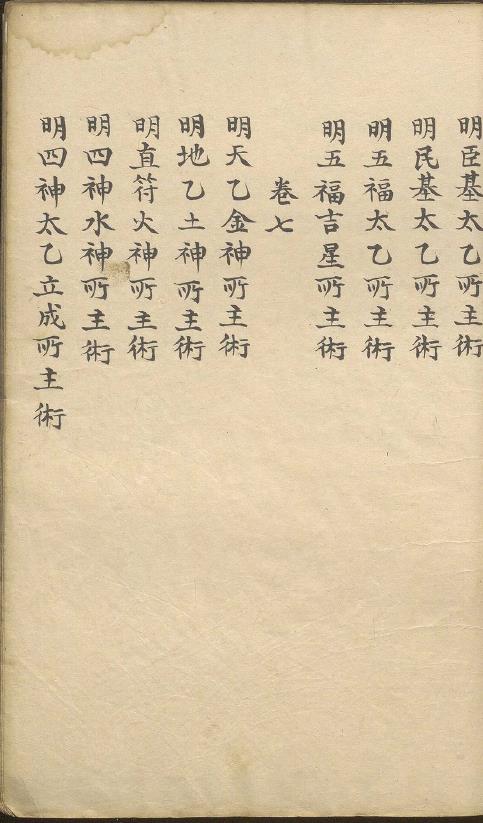 明臣基太乙所主術
明民基太乙所主術
明五福太乙所主術
明五福吉星所主術
卷七
明天乙金神所主術
明地乙土神所主術
明直符火神所主術
明四神水神所主術
明四神太乙立成所主術